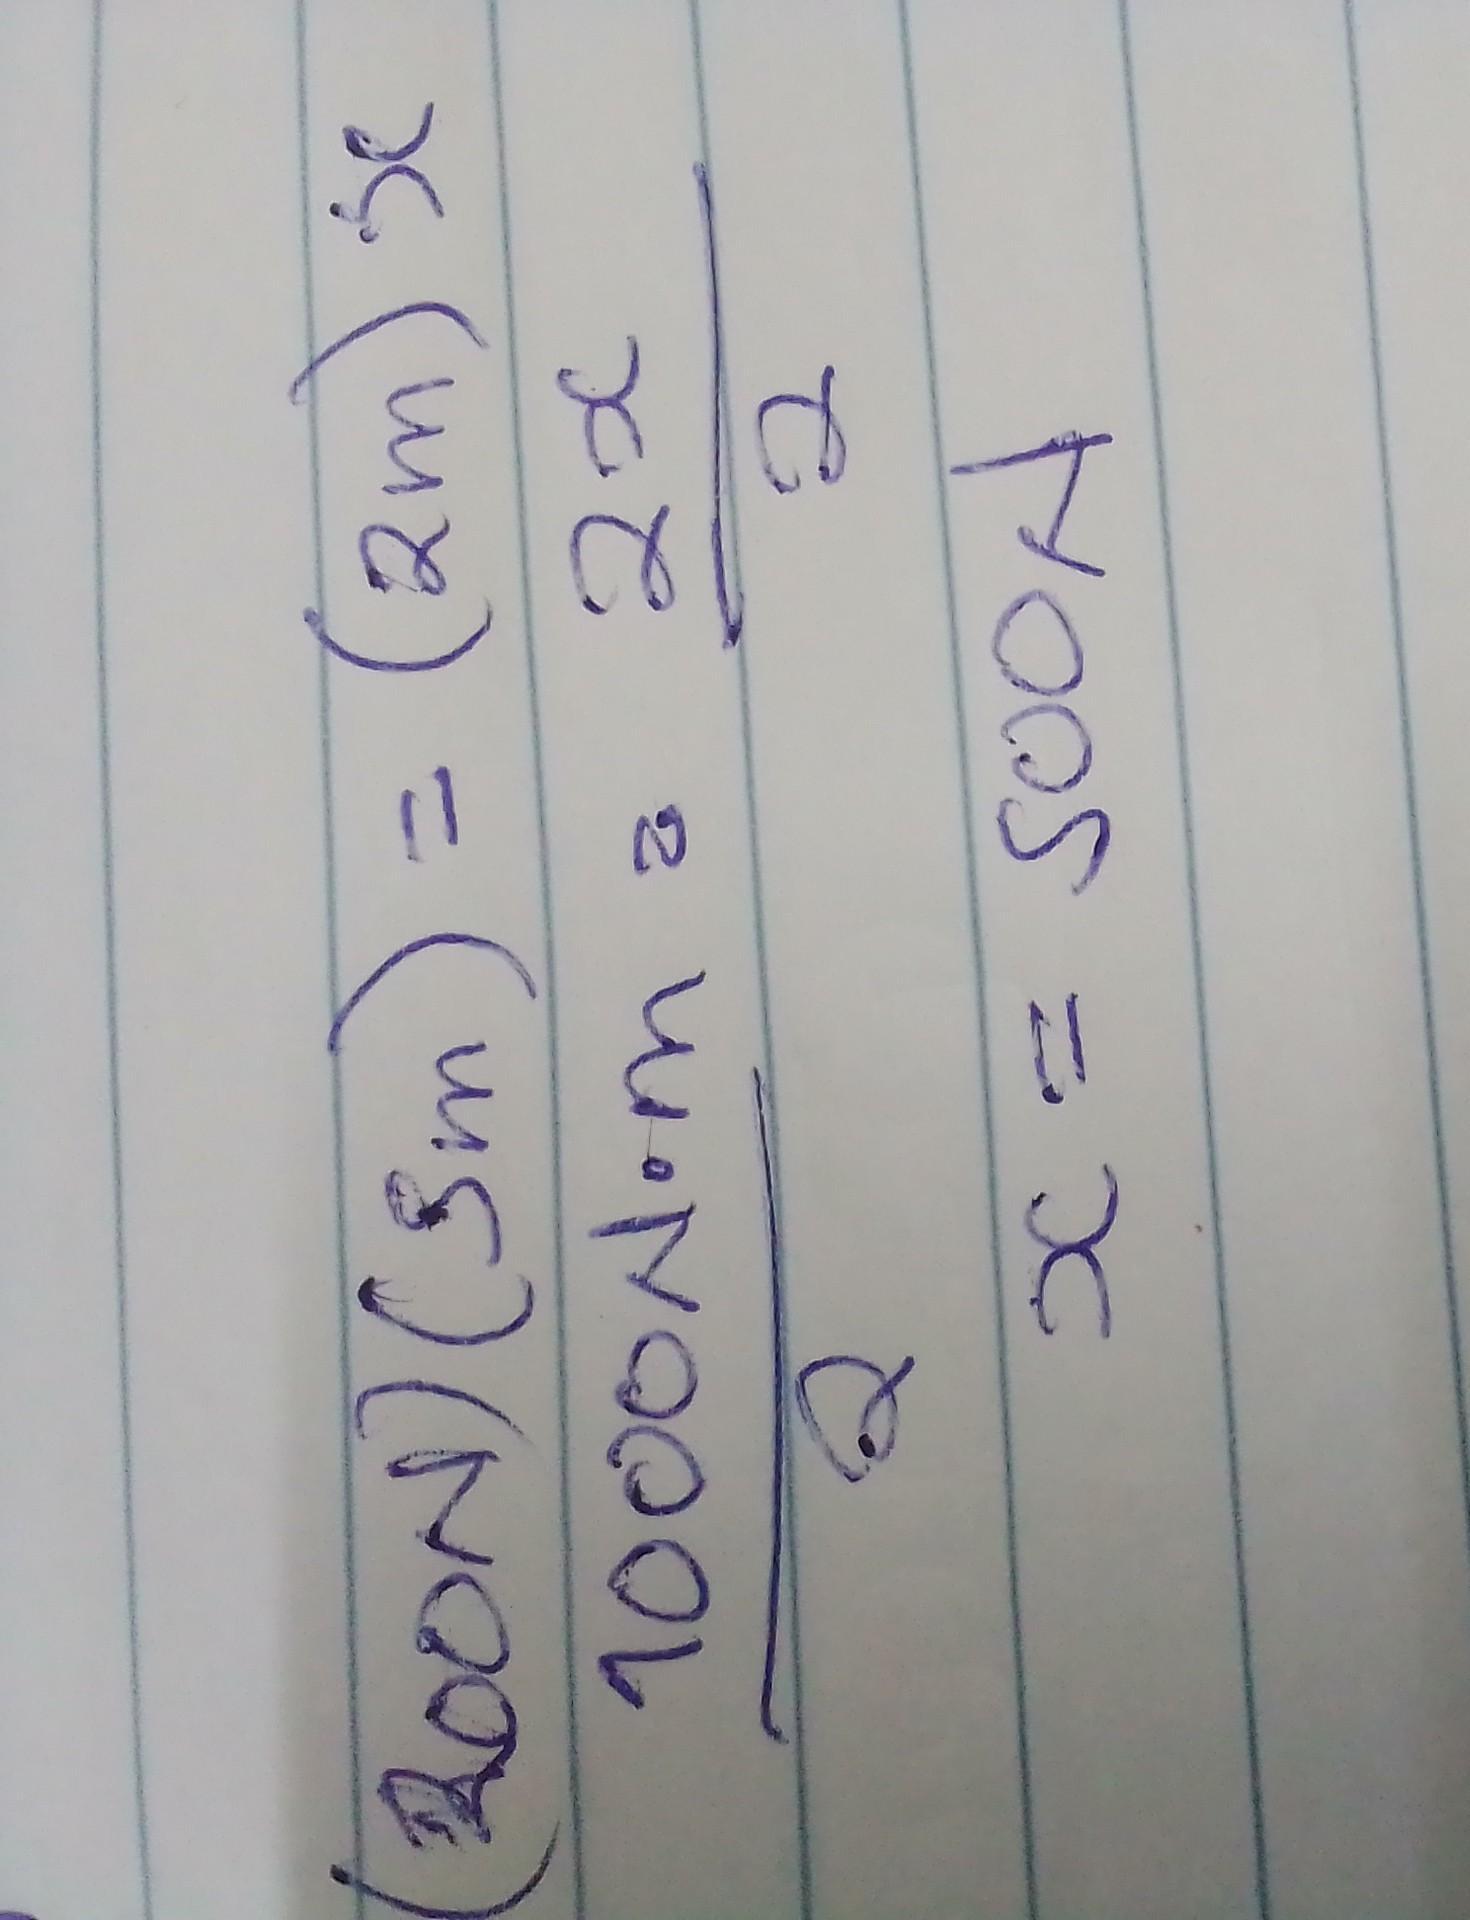 (200N)(5m) = (2m)x
1000N.m = 2x
2 2
x = 500N